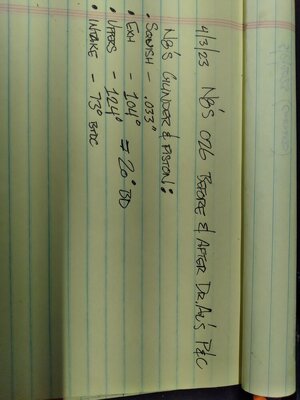 4/3/23 NB'S 026 BEFORE & AFTER DR. AL'S P&C
NB'S CYLINDER & PISTON:
• SQUISH - .033"
• EXH - 104°
• UPPERS - 124° = 20° BD
• INTAKE - 73° BTDC